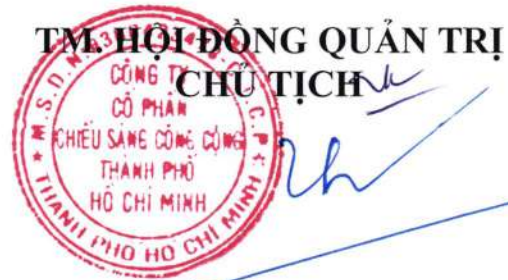 TM. HỘI ĐỒNG QUẢN TRỊ
CHỦ TỊCH
CÔNG TY
CỔ PHẦN
CHIẾU SÁNG CÔNG CỘNG
THÀNH PHỐ
HỒ CHÍ MINH
THÀNH PHỐ HỒ CHÍ MINH